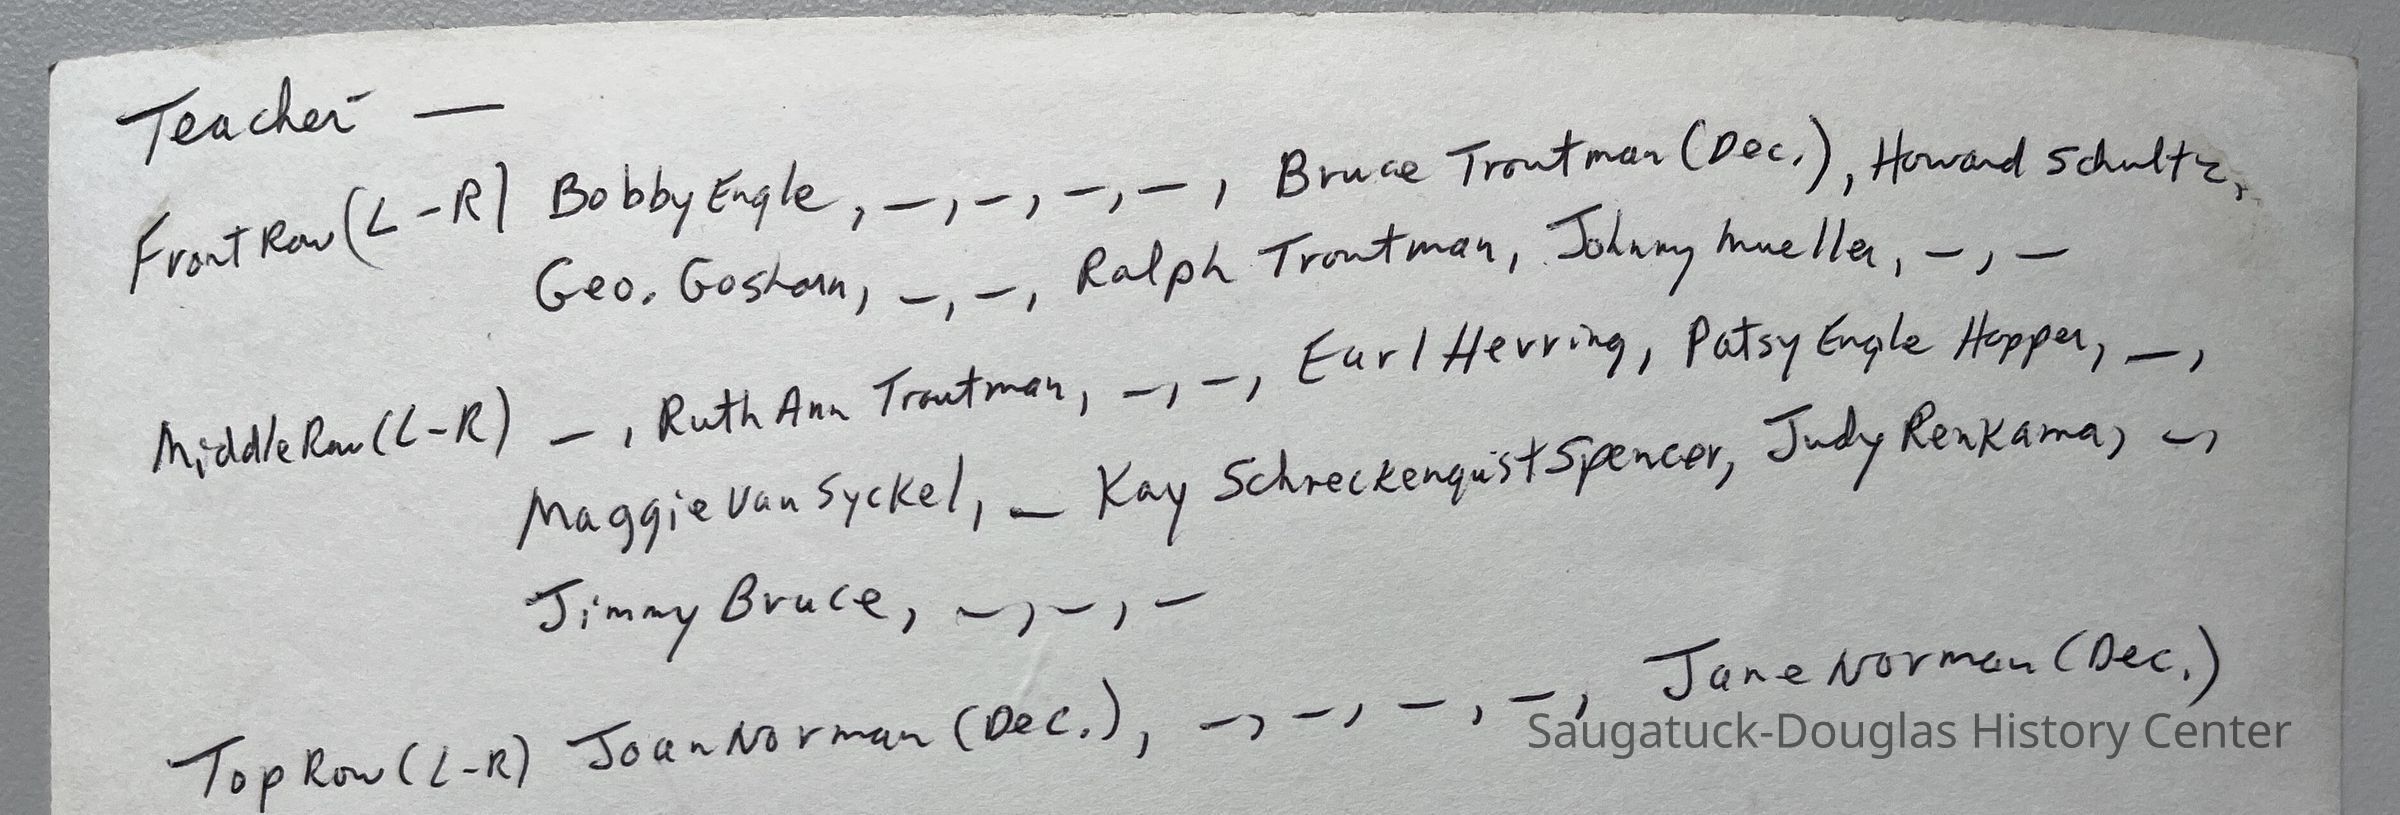 Teacher —
Front Row (L-R) Bobby Engle, —, —, —, —, Bruce Troutman (Dec.), Howard Schultz,
Geo. Goshorn, —, —, Ralph Troutman, Johnny Mueller, —, —
Middle Row (L-R) —, Ruth Ann Troutman, —, —, Earl Herring, Patsy Engle Hopper, —,
Maggie Van Syckel, — Kay Schreckenquist Spencer, Judy Renkama, —,
Jimmy Bruce, —, —, —
Top Row (L-R) Joan Norman (Dec.), —, —, —, —, Jane Norman (Dec.)
Saugatuck-Douglas History Center